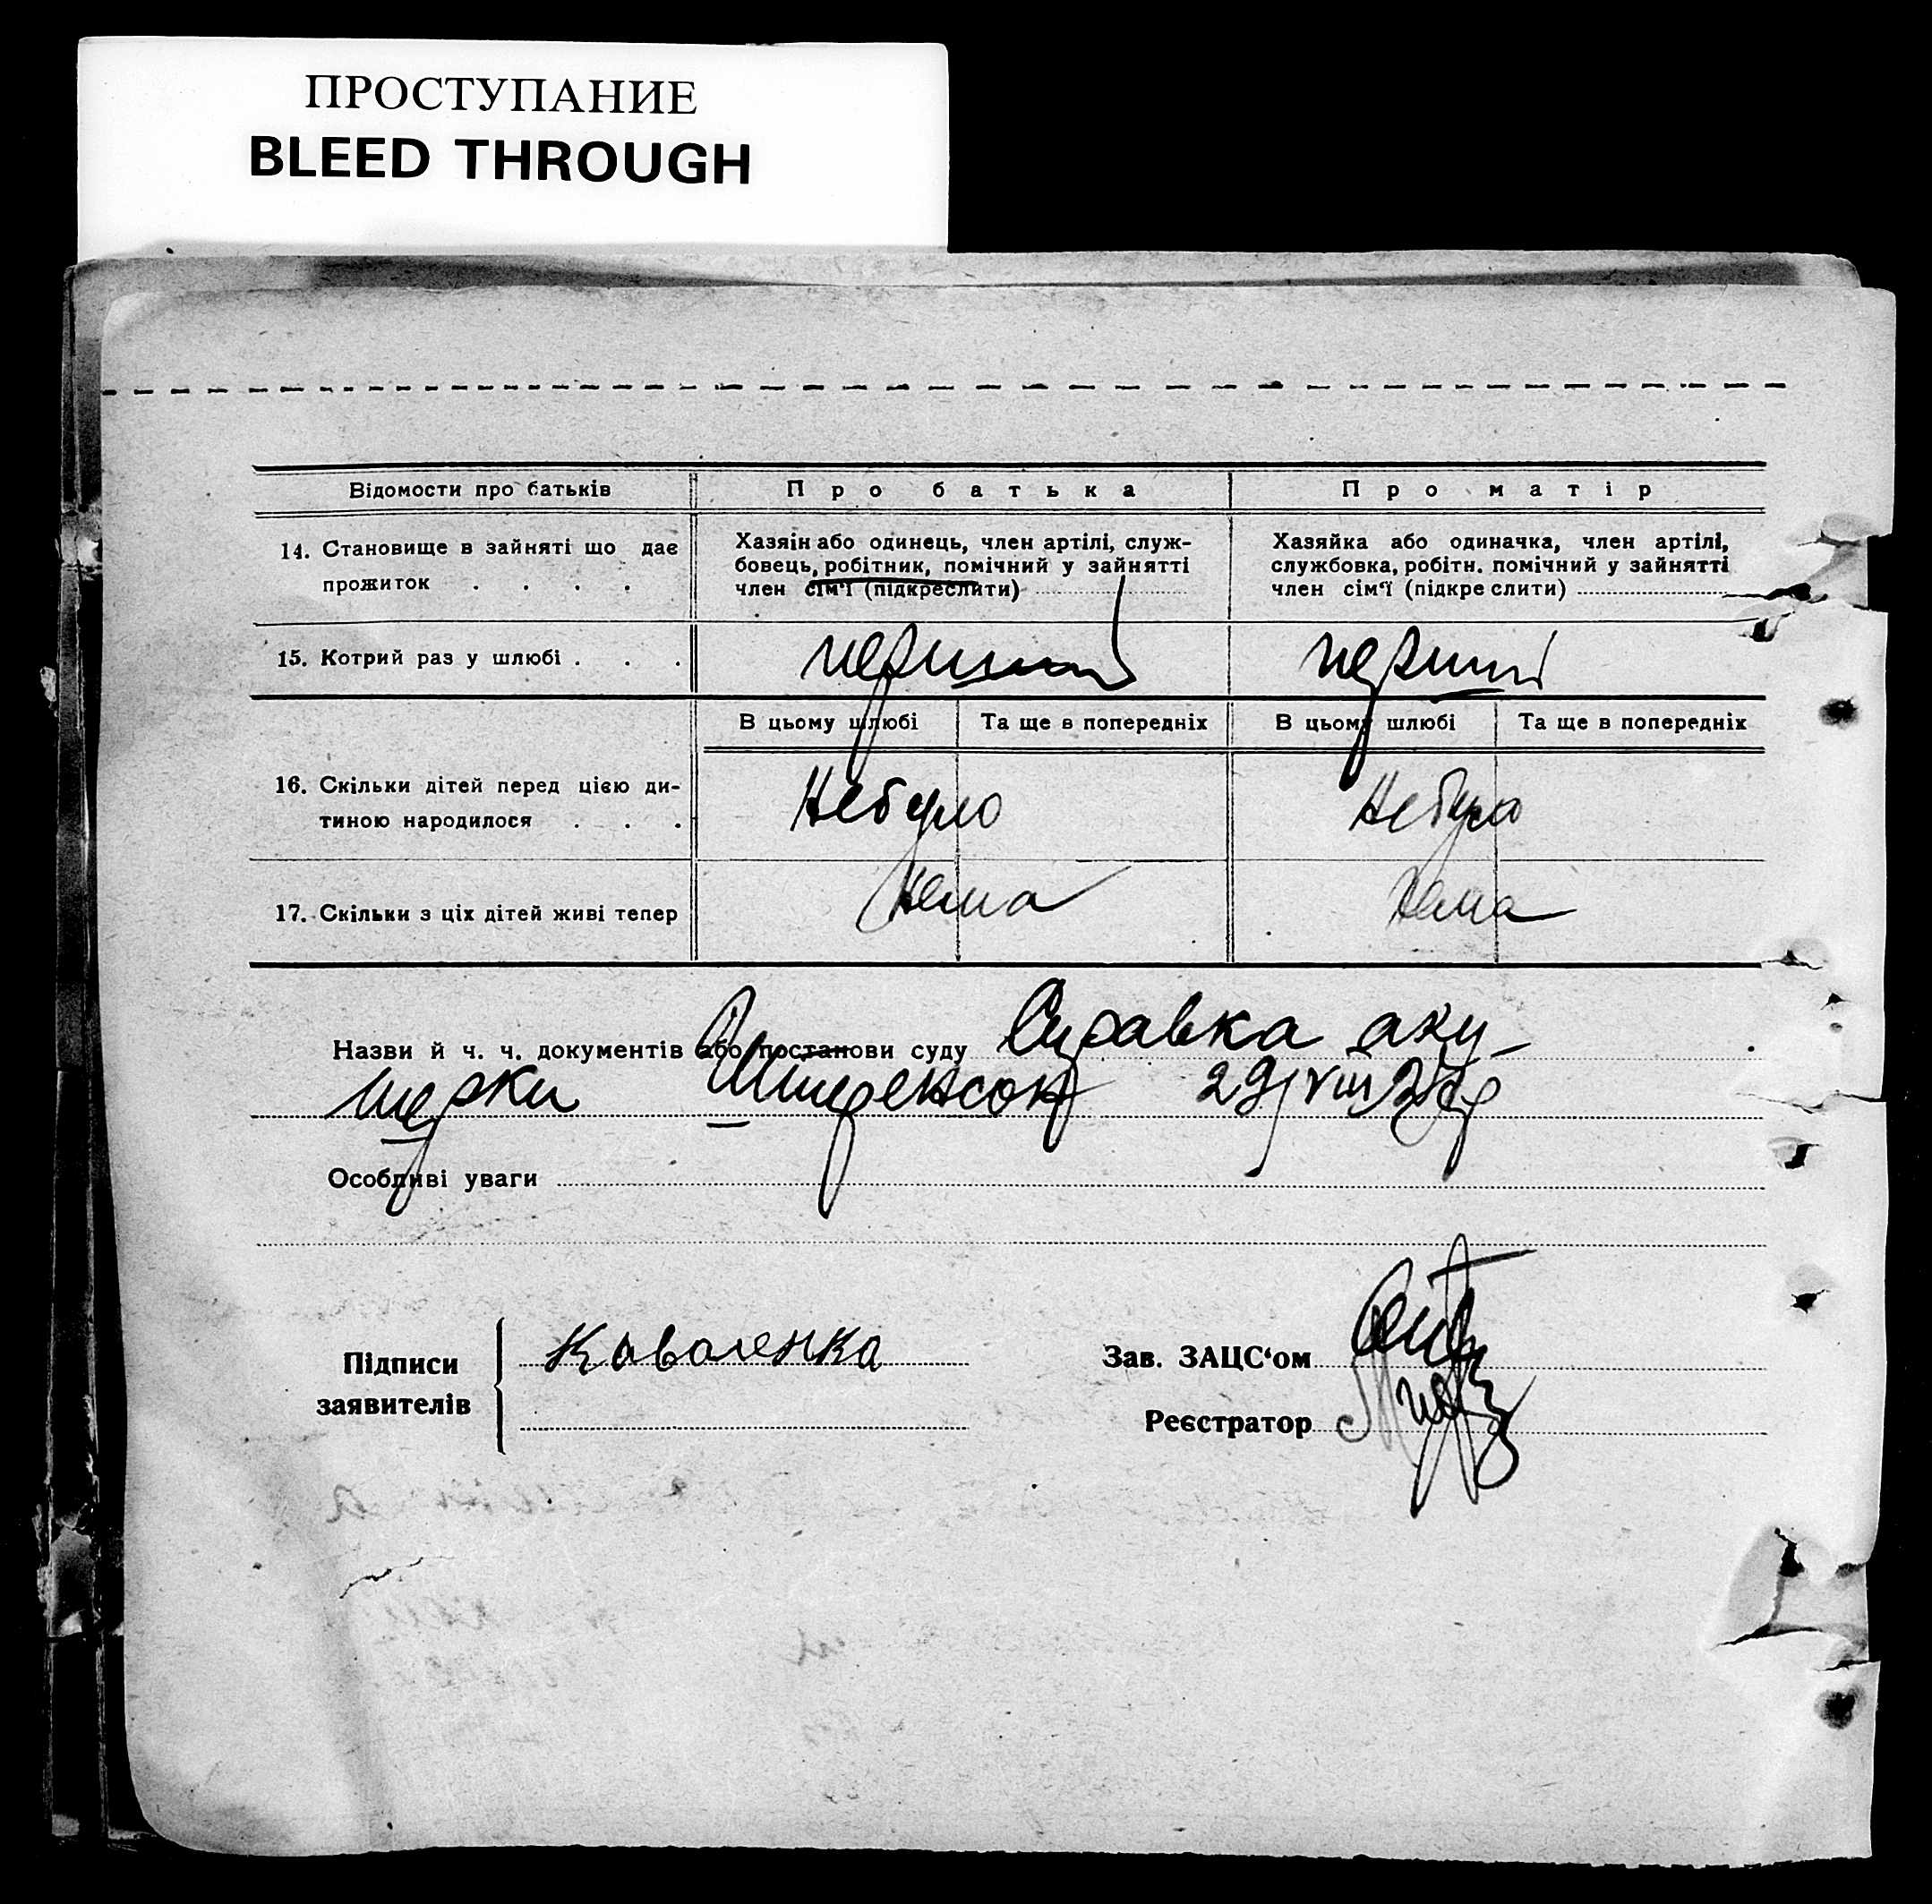 ПРОСТУПАНИЕ
BLEED THROUGH
Відомости про батьків
Про батька
Про матір
14. Становище в зайняті що дає
прожиток . . . .
Хазяін або одинець, член артілі, служ-
бовець, робітник, помічний у зайнятті
член сім‘ї (підкреслити)
Хазяйка або одиначка, член артілі,
службовка, робітн. помічний у зайнятті
член сім‘ї (підкре слити)
15. Котрий раз у шлюбі . . .
перший
перший
В цьому шлюбі
Та ще в попередніх
В цьому шлюбі
Та ще в попередніх
16. Скільки дітей перед цією ди-
тиною народилося . . .
Небуло
Небуло
17. Скільки з ціх дітей живі тепер
Нема
Нема
Назви й ч. ч. документів або постанови суду Справка аку-
шерки 29/VIII
Особливі уваги
Підписи
заявителів
Коваленка
Зав. ЗАЦС‘ом
Реєстратор